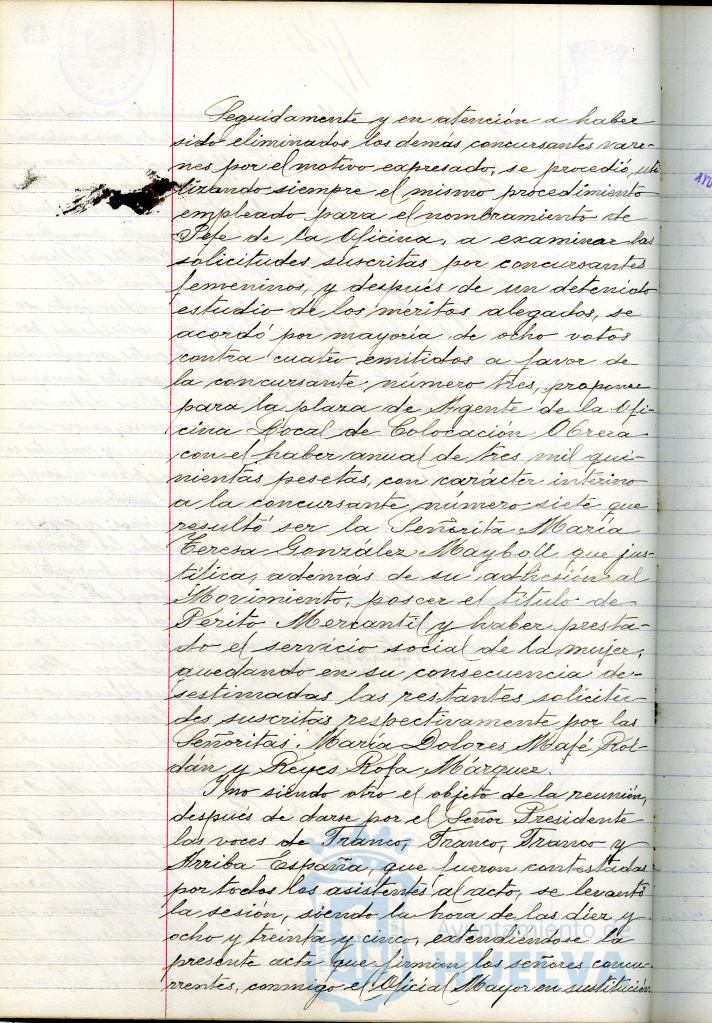 Seguidamente y en atención a haber
sido eliminados los demás concursantes varo-
nes por el motivo expresado, se procedió, uti
lizando siempre el mismo procedimiento
empleado para el nombramiento de
Jefe de la Oficina, a examinar las
solicitudes suscritas por concursantes
femeninos, y después de un detenido
estudio de los méritos alegados, se
acordó por mayoría de ocho votos
contra cuatro emitidos a favor de
la concursante, número tres, proponer
para la plaza de Agente de la Ofi-
cina Local de Colocación Obrera
con el haber anual de tres mil qui-
nientas pesetas, con carácter interino
a la concursante, número siete que
resultó ser la Señorita María
Teresa González Mayboll, que jus-
tifica, además de su adhesión al
Movimiento, poseer el título de
Perito Mercantil y haber presta-
do el servicio social de la mujer,
quedando en su consecuencia de-
sestimadas las restantes solicitu-
des suscritas respectivamente por las
Señoritas María Dolores Mafé Rol-
dán y Reyes Rofa Márquez.
Y no siendo otro el objeto de la reunión,
después de darse por el Señor Presidente
las voces de Franco, Franco, Franco y
Arriba España, que fueron contestadas
por todos los asistentes al acto, se levantó
la sesión, siendo la hora de las diez y
ocho y treinta y cinco, extendiéndose la
presente acta que firman los señores concu-
rrentes, conmigo el Oficial Mayor en sustitución
Ayuntamiento de
HUELVA
AYU